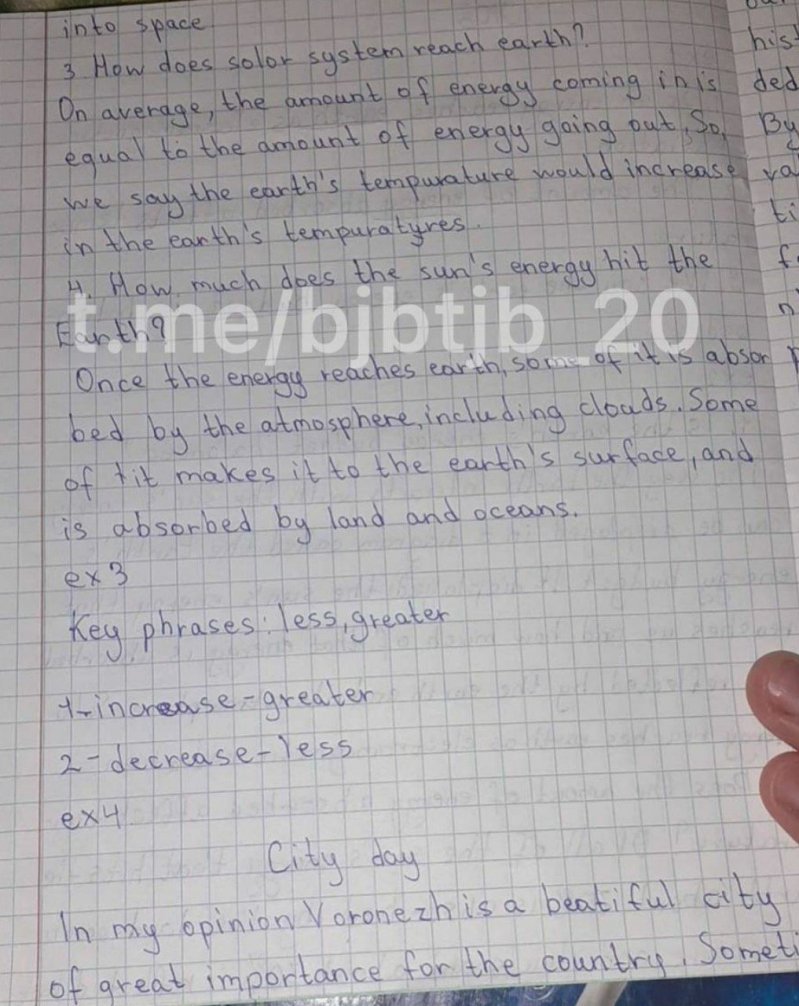 into space
3 How does solor system reach earth?
On average, the amount of energy coming in is
equal to the amount of energy going out, So,
we say the earth's tempurature would increase
in the earth's tempuratyres.
4. How much does the sun's energy hit the
Earth?
Once the energy reaches earth, some of it is absor
bed by the atmosphere, including clouds. Some
of tit makes it to the earth's surface, and
is absorbed by land and oceans.
ex3
Key phrases: less, greater
1-increase-greater
2-decrease-less
ex4
City day
In my opinion Voronezh is a beatiful city
of great importance for the country. Someti
his
ded
By
va
ti
f
n
t.me/bjbtjb_20